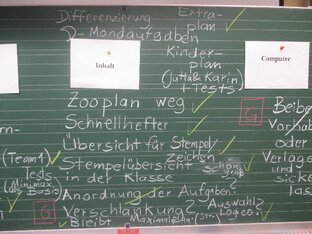 Differenzierung
D-Mondaufgaben
Extra-
plan
Kinder-
plan
(Jutta & Karin)
+ Tests
Inhalt
Computer
Zooplan weg
Schnellhefter
Übersicht für Stempel/
zeichen
Stempelübersicht
in der Klasse
Schon
groß
Anordnung der Aufgaben?
Verschlankung?
Auswahl
Logico?
Bleibt
(Team 1)
Tests
(Mini, max,
Basis)
G
G
Vorhab
oder
Verlage
und